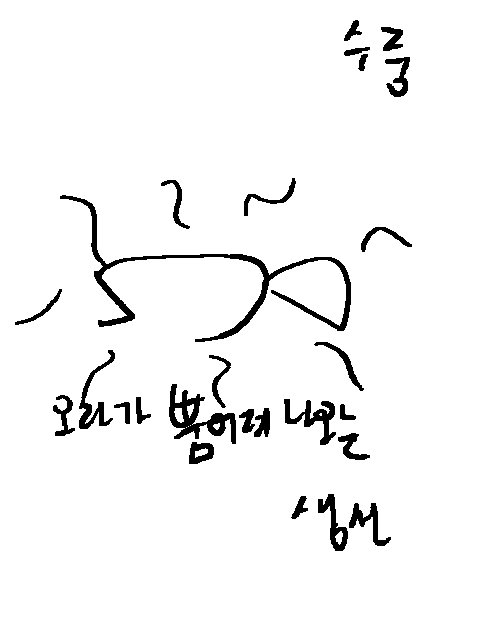 수중
오라가 뿜어져 나오는
생선